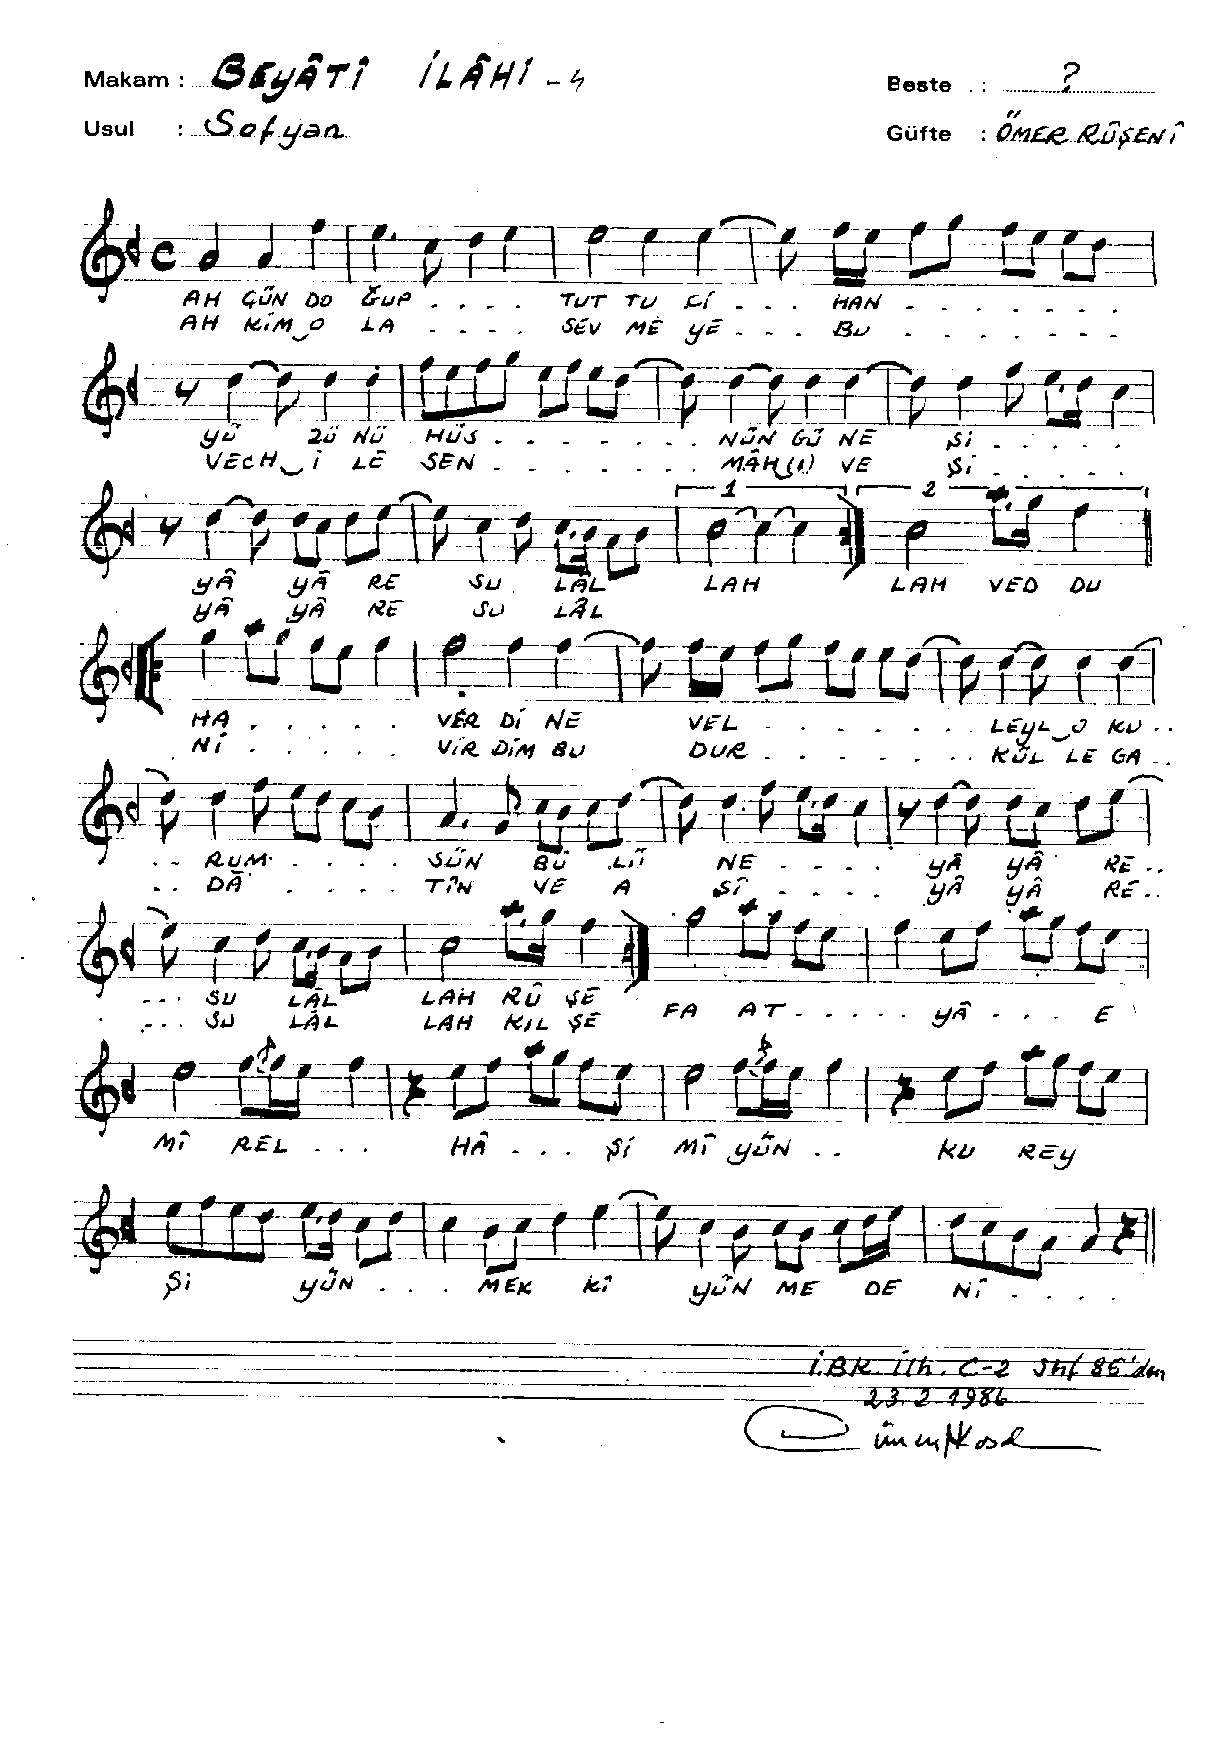 Makam : BEYÂTÎ İLÂHİ - 4
Beste : ?
Usul : Sofyan
Güfte : ÖMER RÛŞENÎ
AH GÜN DO ĞUP . . . . TUT TU Cİ . . . HAN . . . . . . .
AH KİM O LA . . . . SEV ME YE . . . BU . . . . . . .
YÜ ZÜ NÜ HÜS . . . . . . . NÜN GÜ NE Şİ . . . . .
VECH İ LE SEN . . . . . . . MÂH(I) VE Şİ . . . . .
1 2
YÂ YÂ RE SU LÂL LAH LAH VED DU
YÂ YÂ RE SU LÂL
HA . . . . . VER Dİ NE VEL . . . . . . . LEYL O KU . .
Nİ . . . . . VİR DİM BU DUR . . . . . . . KÜL LE GA . .
. . RUM . . . . . SÜN BÜ LÜ NE . . . . YÂ YÂ RE . .
. . DÂ . . . . TÎN VE A SÎ . . . . YÂ YÂ RE . .
. . . SU LÂL LAH RÛ ŞE FA AT . . . . . YÂ . . . E
. . . SU LÂL LAH KIL ŞE
MÎ REL . . . HÂ . . . Şİ MÎ YÜN . . KU REY
Şİ YÜN . . . MEK KÎ YÜN ME DE NÎ . . . .
İ.BK. İlh. C-2 Shf 85'den
23.2.1986